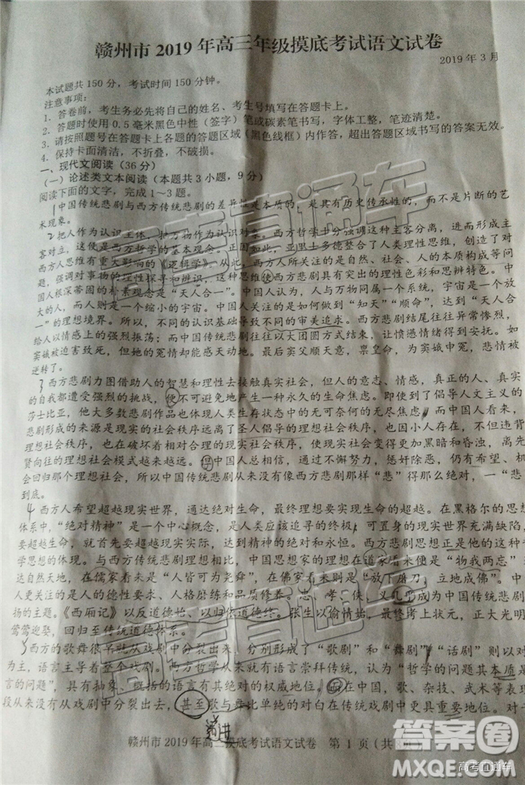 赣州市 2019 年高三年级摸底考试语文试卷
2019 年 3 月
本试题共 150 分，考试时间 150 分钟。
注意事项：
1. 答卷前，考生务必先将自己的姓名、考生号填写在答题卡上。
2. 答题时使用 0.5 毫米黑色中性（签字）笔或碳素笔书写，字体工整，笔迹清楚。
3. 请按照题号在答题卡上各题的答题区域（黑色线框）内作答，超出答题区域书写的答案无效。
4. 保持卡面清洁，不折叠，不破损。
一、现代文阅读（36 分）
（一）论述类文本阅读（本题共 3 小题，9 分）
阅读下面的文字，完成 1～3 题。
中国传统悲剧与西方传统悲剧的差异性是本质的，是具有历史传承性的，而不是片断的艺
术现象。
把人作为认识主体，
客对立，这便是西方哲学的基本观念。正因如此，亚里士多德整合了人类理性思维，创造了对
西方人思维有重大影响的《逻辑学》。从此，西方人所关注的是自然、社会、人的本质构成等问
题，强调对事物的理性探寻和辨识，这种思维使西方悲剧具有突出的理性色彩和思辨特色。中
国人根深蒂固的朴素观念是“天人合一”。中国人认为，人与万物同属一个系统，宇宙是一个放
大的人，而人则是一个缩小的宇宙。中国人关注的是如何做到“知天”“顺命”，达到“天人合
一”的理想境界。所以，不同的认识基础导致不同的审美追求。西方悲剧结尾往往异常惨烈，
给人以情感上的强烈振荡；而中国传统悲剧往往以大团圆方式结束，让愤懑情绪得到安抚。如
窦娥被迫害致死，但她的冤情却能感动天地，最后窦父顺天意，禀皇命，为窦娥中冤，悲情被
逆转了。
西方悲剧力图借助人的智慧和理性去接触真实社会，但人的意志、情感，真正的人、真实
的自我都遭受强烈的挑战，使不可避免地产生一种永久的生命焦虑。即使到了倡导人文主义的
莎士比亚，他大多数悲剧作品也体现人类生存状态中的无可奈何的无尽焦虑。而中国人看来，
悲剧形成的来源是现实的社会秩序远离了圣人倡导的理想社会秩序，也因小人存在，不但违背
理想社会秩序，也在破坏着相对合理的现实社会秩序，使现实社会变得更加黑暗和昏浊，离先
贤向往的理想社会模式越来越远。但中国人总相信，通过不懈努力，惩奸除恶，仍有希望、机
会回归那个理想社会，所以中国传统悲剧从来没有像西方悲剧那样“悲”得那么绝对，一“悲”
到底。
西方人希望超越现实世界，通达绝对生命，最终理想要实现生命的超越。在黑格尔的思想
体系中，“绝对精神”是一个中心概念，是人类应该追寻的终极，可置身的现实世界充满缺陷，
要超越生命，就首先要超越现实实际，达到精神世界的自由。西方悲剧思想正是他的这种哲
学思想的体现。与西方传统悲剧理想相比，中国思想家的理想在道家看来便是“物我两忘”，
达自然天地，在儒家看来则是“人皆可为尧舜”，在佛家看来则是“放下屠刀，立地成佛”。中
人更关注的是人的德性要求、人格磨练和品质修养。
扬的主题。《西厢记》以反道德始、以归依道德终。张生以偷情始，最终考上状元，正大光明
莺莺迎娶，回归至传统道德怀念。
西方的歌舞很早就从戏剧中分裂出来，分别形成了“歌剧”和“舞剧”，“话剧”则以对
为主，语言主导着整个戏剧。西方哲学从来就有语言崇拜的传统，认为“哲学的问题其本质是
言的问题”，具有抽象、概括的语言有其绝对的权威地位。但在中国，歌、杂技、武术等表
段从来没有从戏剧中分裂出去，甚至歌与舞比单绝的对白在传统戏剧中更具重要地位。对于
赣州市 2019 年高三摸底考试语文试卷 第 1 页（共
答案圈
高考直通车